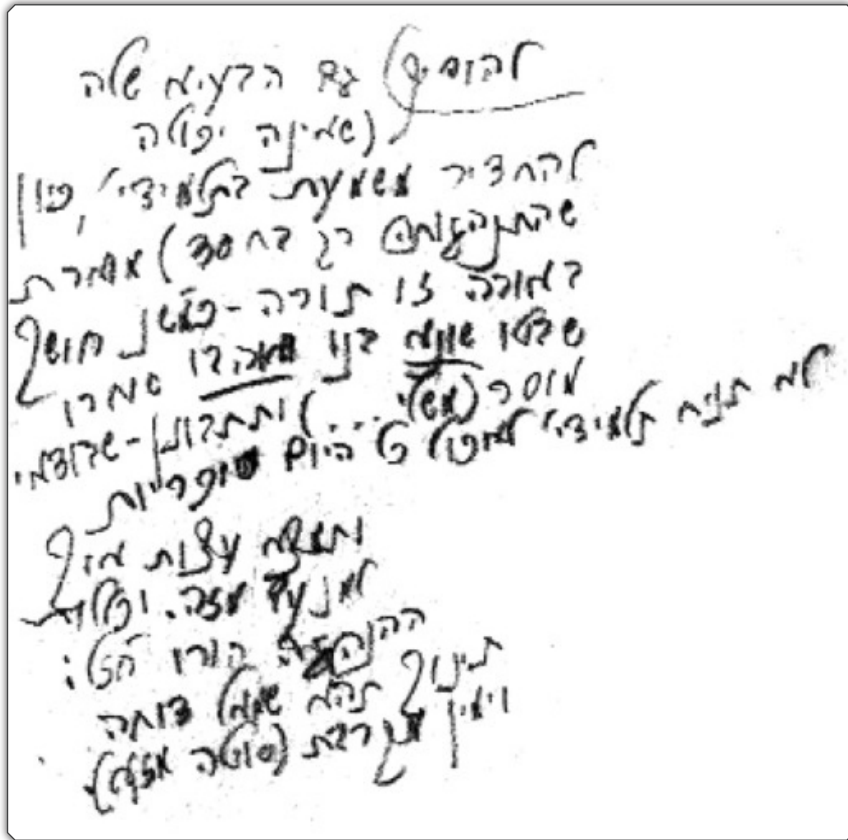 להוסיף גם הבעיא שלה
(שאינה יכולה
להחדיר משמעת בתלמידי', כיון
שהתנהגותה רק בחסד) אומרת
במורה זו תורה - פע"נ חושך
שבטו שונא בנו ואוהבו שחרו
מוסר (משלי ...) ותתבונן - שבודאי
לא תניח תלמידי' לאכול כל היום סוכריות
ותמצא עצות איך
למנעם מזה. וכללות
ההנהגה הורו חז"ל:
תינוק תהא שמאל דוחה
וימין מקרבת (סוטה מז, א).